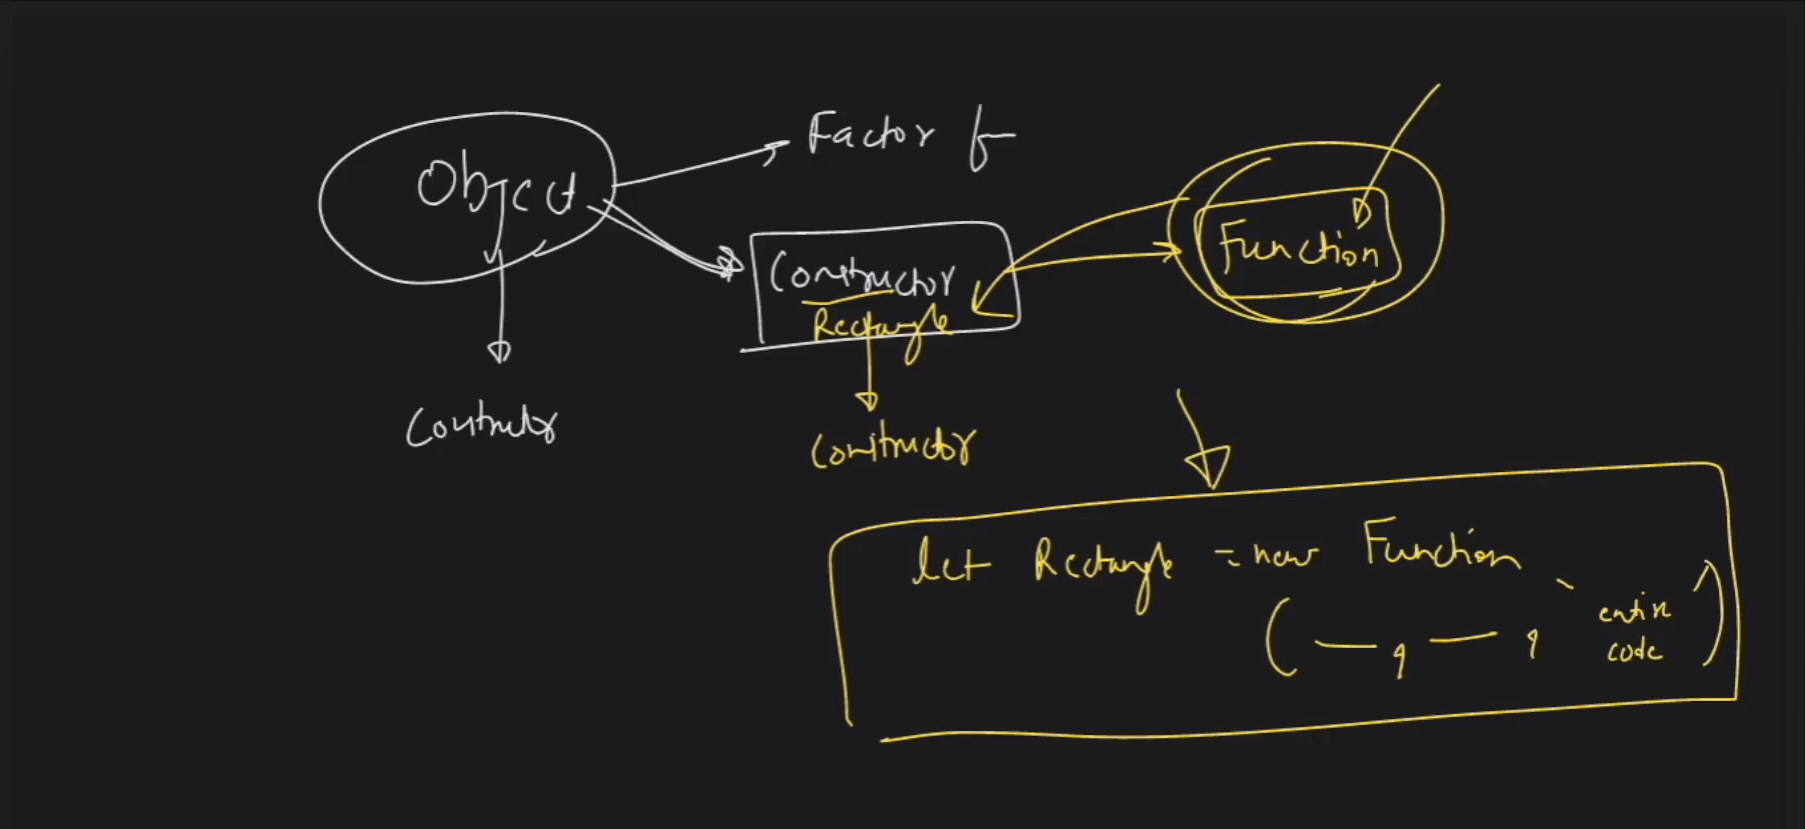 Object
Factor f
Constructor
Rectangle
Function
Constructor
let Rectangle = new Function
( — , — , ` entire code )